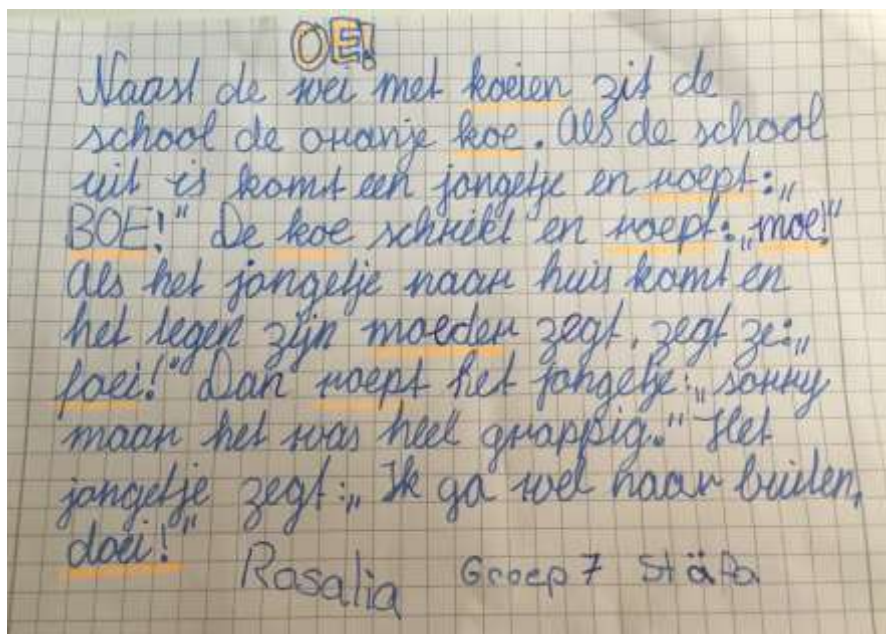 OE!
Naast de wei met koeien zit de
school de oranje koe. Als de school
uit is komt een jongetje en roept:„
BOE!" De koe schrikt en roept:„moe!"
Als het jongetje naar huis komt en
het tegen zijn moeder zegt, zegt ze:„
foei!" Dan roept het jongetje:„sorry
maar het was heel grappig." Het
jongetje zegt:„Ik ga wel naar buiten,
doei!"
Rosalia Groep 7 Stäfa